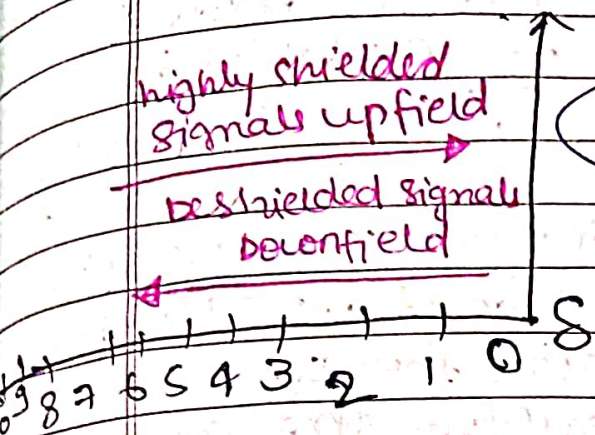 highly shielded
signals upfield
Deshielded signals
Downfield
9 8 7 6 5 4 3 2 1 0 δ